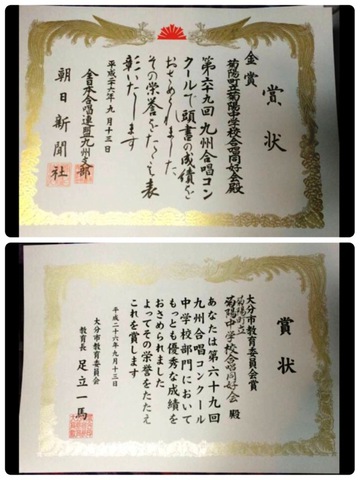 賞状
金賞
菊陽町立菊陽中学校合唱同好会殿
第六十九回九州合唱コン
クールで頭書の成績を
おさめられました
その栄誉をたたえ表
彰いたします
平成二十六年九月十三日
全日本合唱連盟九州支部
朝日新聞社
賞状
大分市教育委員会賞
菊陽町立
菊陽中学校合唱同好会 殿
あなたは第六十九回
九州合唱コンクール
中学校部門において
もっとも優秀な成績を
おさめられました
よってその栄誉をたたえ
これを賞します
平成二十六年九月十三日
大分市教育委員会
教育長 足立一馬